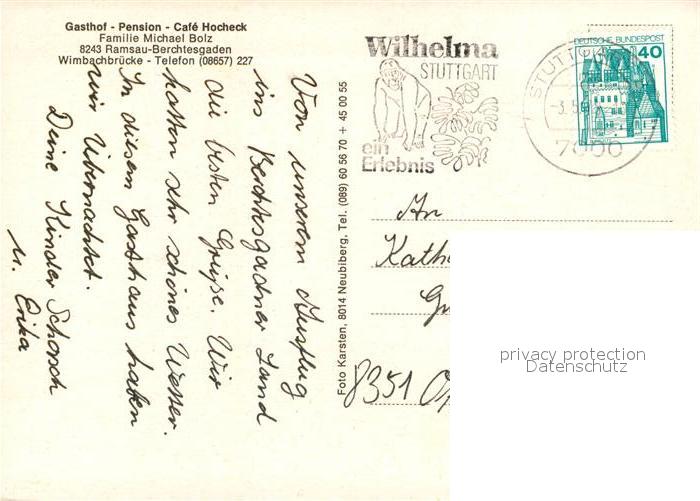 Gasthof - Pension - Café Hocheck
Familie Michael Bolz
8243 Ramsau-Berchtesgaden
Wimbachbrücke - Telefon (08657) 227
Von unserem Ausflug
ins Berchtesgadner Land
die besten Grüße. Wir
hatten sehr schönes Wetter.
In diesem Gasthaus haben
wir übernachtet.
Deine Kinder Schorsch
u. Erika
Foto Karsten, 8014 Neubiberg, Tel. (089) 60 56 70 + 45 00 55
Wilhelma
STUTTGART
ein
Erlebnis
STUTTG
7000
DEUTSCHE BUNDESPOST
40
An
Kath
8351
privacy protection
Datenschutz